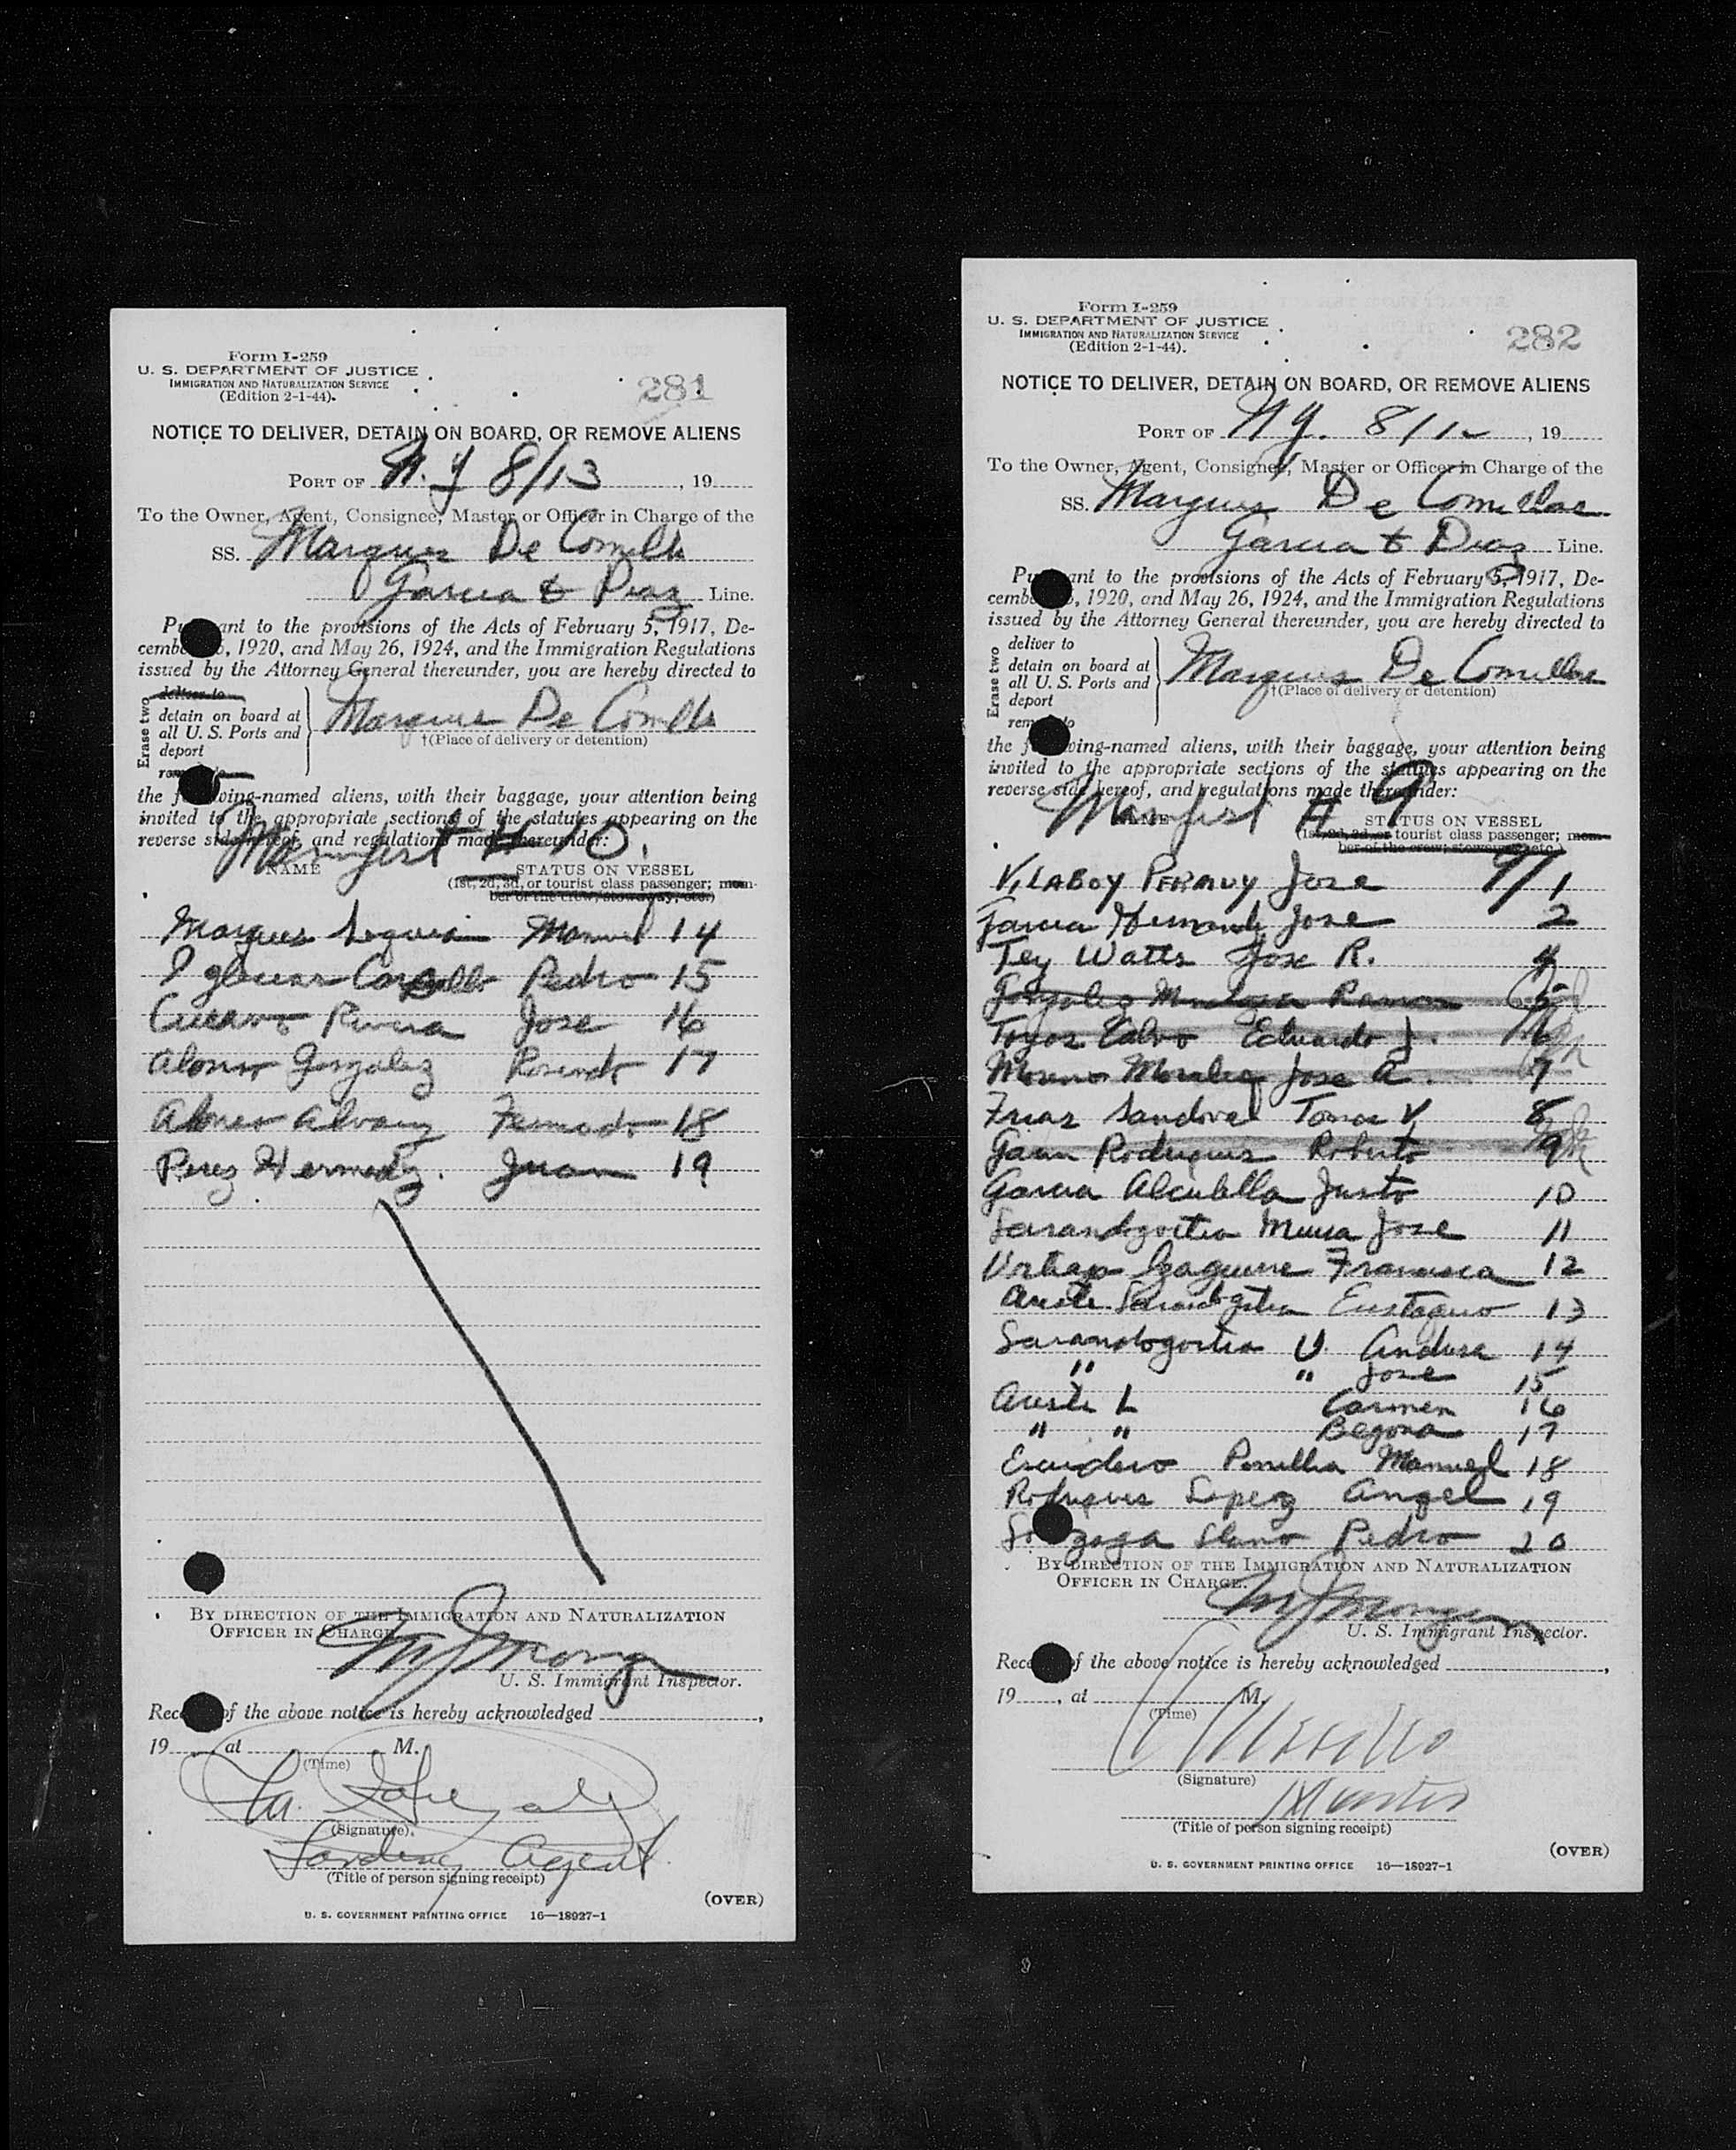 Form I-259
U. S. DEPARTMENT OF JUSTICE
IMMIGRATION AND NATURALIZATION SERVICE
(Edition 2-1-44).
281
NOTICE TO DELIVER, DETAIN ON BOARD, OR REMOVE ALIENS
PORT OF N. Y 8/13, 19
To the Owner, Agent, Consignee, Master or Officer in Charge of the
SS. Marques De Comills
Garcia & Diaz Line.
Pu ant to the provisions of the Acts of February 5, 1917, De-
cembe 5, 1920, and May 26, 1924, and the Immigration Regulations
issued by the Attorney General thereunder, you are hereby directed to
Erase two
deliver to
detain on board at
all U. S. Ports and
deport
Marques De Comills
†(Place of delivery or detention)
the f wing-named aliens, with their baggage, your attention being
invited to the appropriate sections of the statutes appearing on the
reverse side hereof, and regulations made thereunder:
Manifest # 10
NAME
STATUS ON VESSEL
(1st, 2d, 3d, or tourist class passenger; mem-
ber of the crew; stowaway, etc.)
Marques Manuel 14
Iglesias Pedro 15
Cuervo Rivera Jose 16
Alonso Gonzalez Rosendo 17
Alonso Alvarez Fernando 18
Perez Hermedez. Juan 19
BY DIRECTION OF THE IMMIGRATION AND NATURALIZATION
OFFICER IN CHARGE.
U. S. Immigrant Inspector.
Rec of the above notice is hereby acknowledged ,
19 at M.
(Time)
(Signature)
Landing Agent
(Title of person signing receipt)
(OVER)
U. S. GOVERNMENT PRINTING OFFICE 16—18927-1
Form I-259
U. S. DEPARTMENT OF JUSTICE
IMMIGRATION AND NATURALIZATION SERVICE
(Edition 2-1-44).
282
NOTICE TO DELIVER, DETAIN ON BOARD, OR REMOVE ALIENS
PORT OF N Y. 8/12, 19
To the Owner, Agent, Consignee, Master or Officer in Charge of the
SS. Marques De Comillas
Garcia & Diaz Line.
Pu ant to the provisions of the Acts of February 5, 1917, De-
cembe 5, 1920, and May 26, 1924, and the Immigration Regulations
issued by the Attorney General thereunder, you are hereby directed to
Erase two
deliver to
detain on board at
all U. S. Ports and
deport
rem to
Marques De Comillas
†(Place of delivery or detention)
the f wing-named aliens, with their baggage, your attention being
invited to the appropriate sections of the statutes appearing on the
reverse side hereof, and regulations made thereunder:
Manifest # 9
STATUS ON VESSEL
(1st, 2d, 3d, or tourist class passenger; mem-
ber of the crew; stowaway, etc.)
VILABOY PERAVY Jose 9/1
Garcia Jose 2
Tey Watts Jose R. 4
Gonzalez Ramon 5
Toyos Calvo Eduardo J. 6
Moreno Morales Jose A. 7
Frias Sandoval Tomas V 8
Garcia Rodriguez Roberto 9
Garcia Alcubilla Justo 10
Sarandogoitia Jose 11
Francisca 12
Eustaquio 13
Sarandogoitia U. Andresa 14
" " Jose 15
L Carmen 16
" " Begona 17
Escudero Manuel 18
Rodriguez Lopez Angel 19
Pedro 20
BY DIRECTION OF THE IMMIGRATION AND NATURALIZATION
OFFICER IN CHARGE.
U. S. Immigrant Inspector.
Rece of the above notice is hereby acknowledged ,
19 , at M.
(Time)
(Signature)
Master
(Title of person signing receipt)
(OVER)
U. S. GOVERNMENT PRINTING OFFICE 16—18927-1